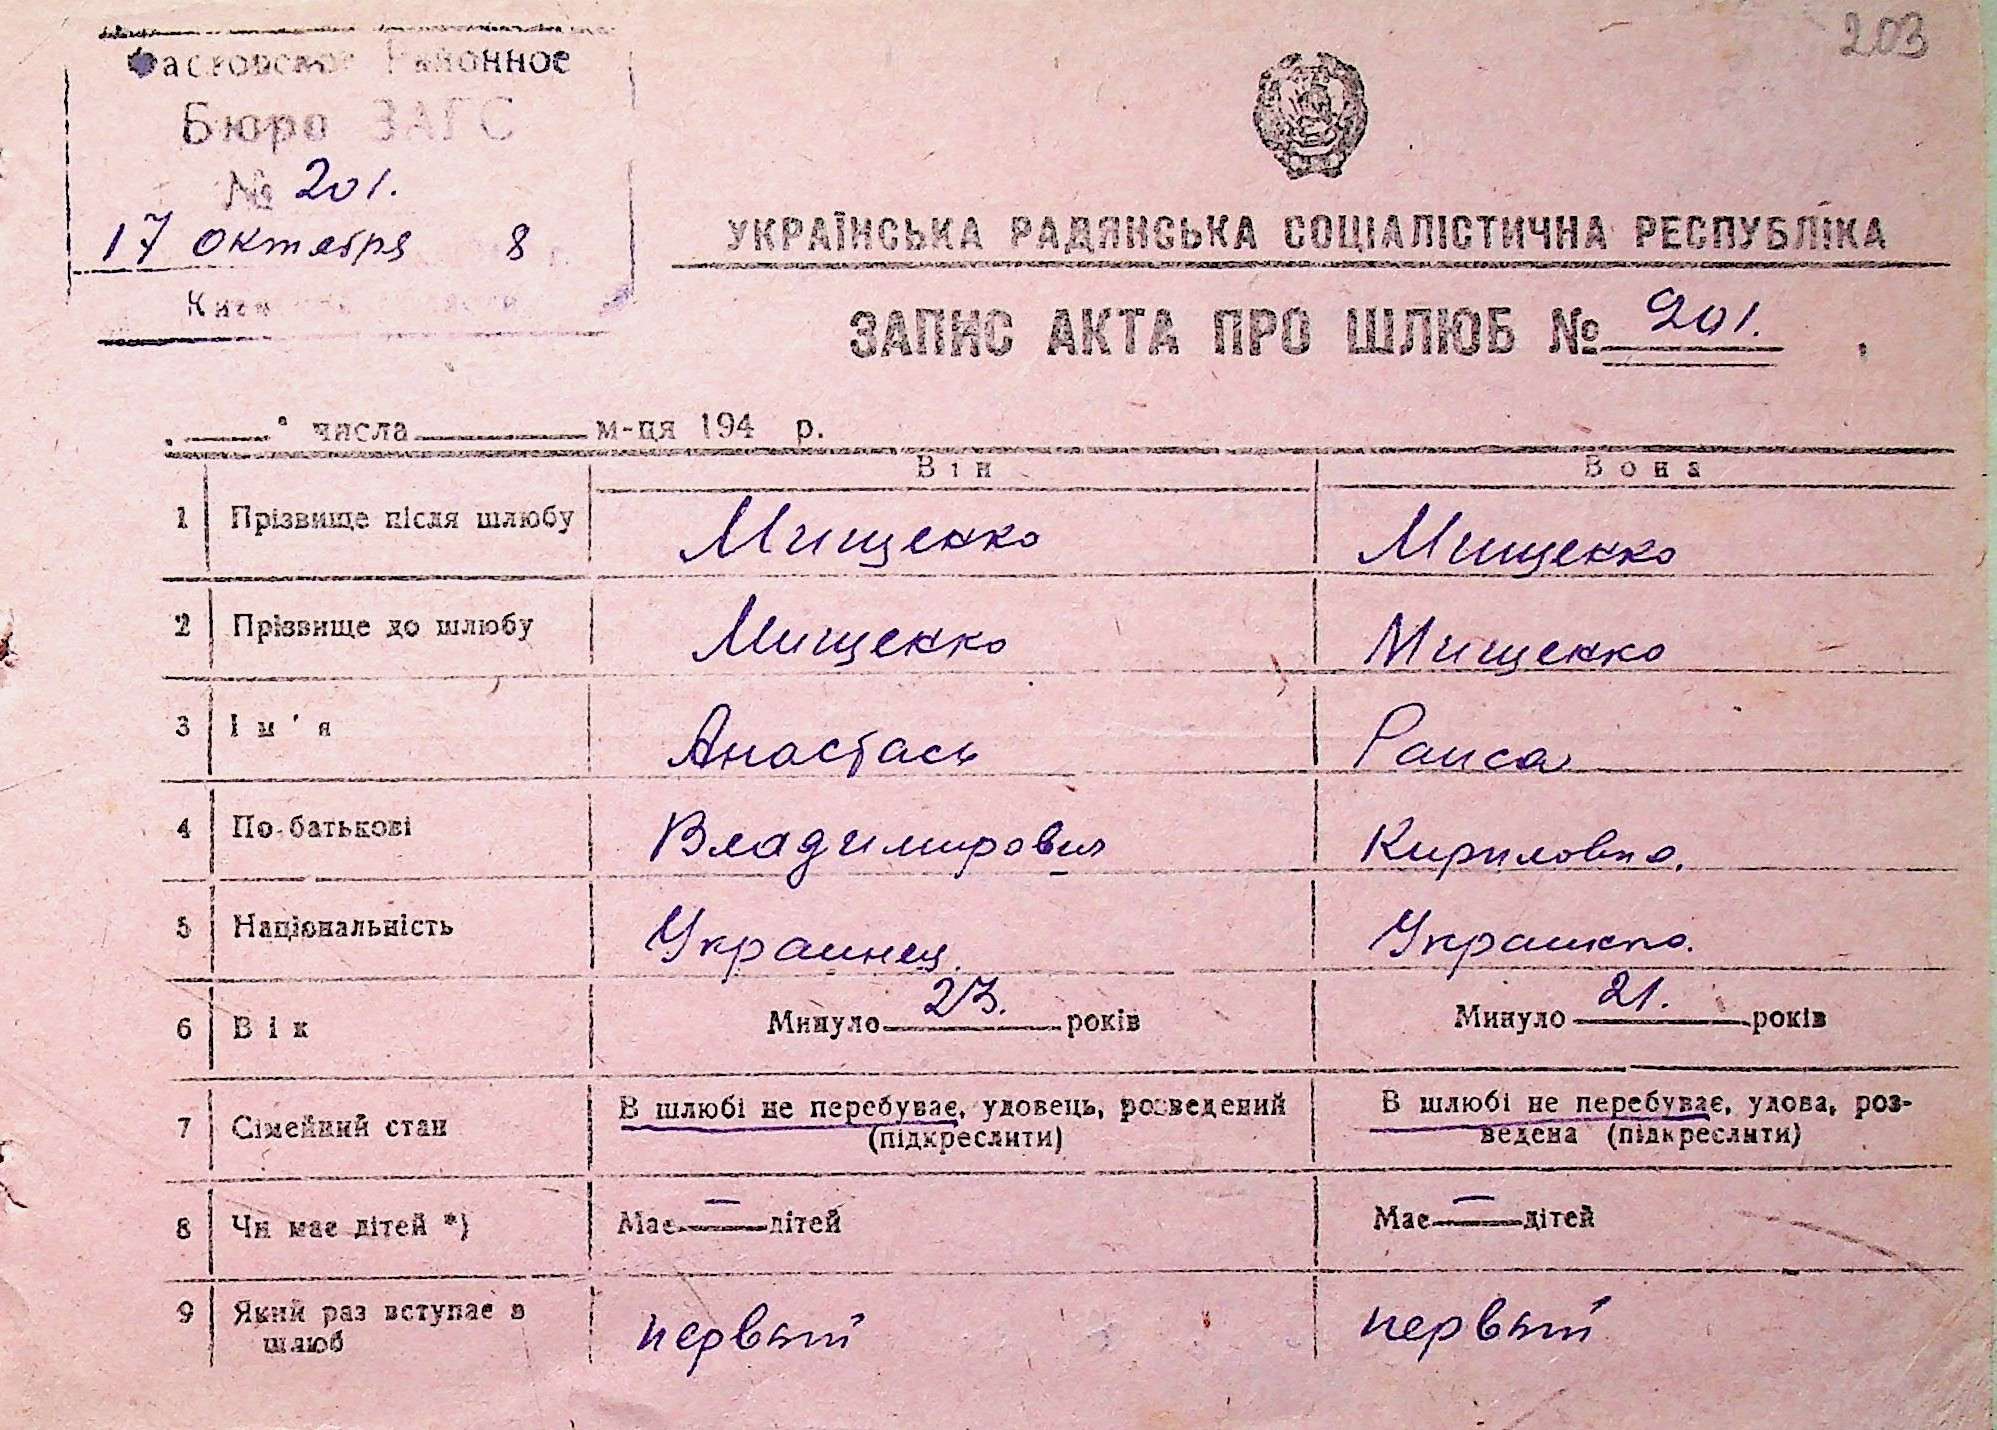 203
Фастовское Районное
Бюро ЗАГС
№ 201.
17 октября 8 г.
УКРАЇНСЬКА РАДЯНСЬКА СОЦІАЛІСТИЧНА РЕСПУБЛІКА
ЗАПИС АКТА ПРО ШЛЮБ № 201.
„ " числа м-ця 194 р.
Він Вона
1 Прізвище після шлюбу Мищенко Мищенко
2 Прізвище до шлюбу Мищенко Мищенко
3 Ім'я Анастась Раиса
4 По батькові Владимирович Кириловна.
5 Національність Украинец. Украинка.
6 Вік Минуло 23. років Минуло 21. років
7 Сімейний стан В шлюбі не перебуває, удовець, розведений В шлюбі не перебуває, удова, роз-
(підкреслити) ведена (підкреслити)
8 Чи має дітей *) Має — дітей Має — дітей
9 Який раз вступає в шлюб первый первый